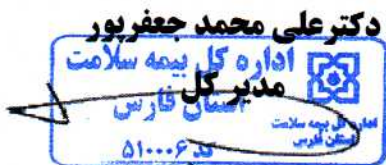 دکتر علی محمد جعفرپور
اداره کل بیمه سلامت
مدیر کل
استان فارس
اداره کل بیمه سلامت
استان فارس
کد ۵۱۰۰۰۶